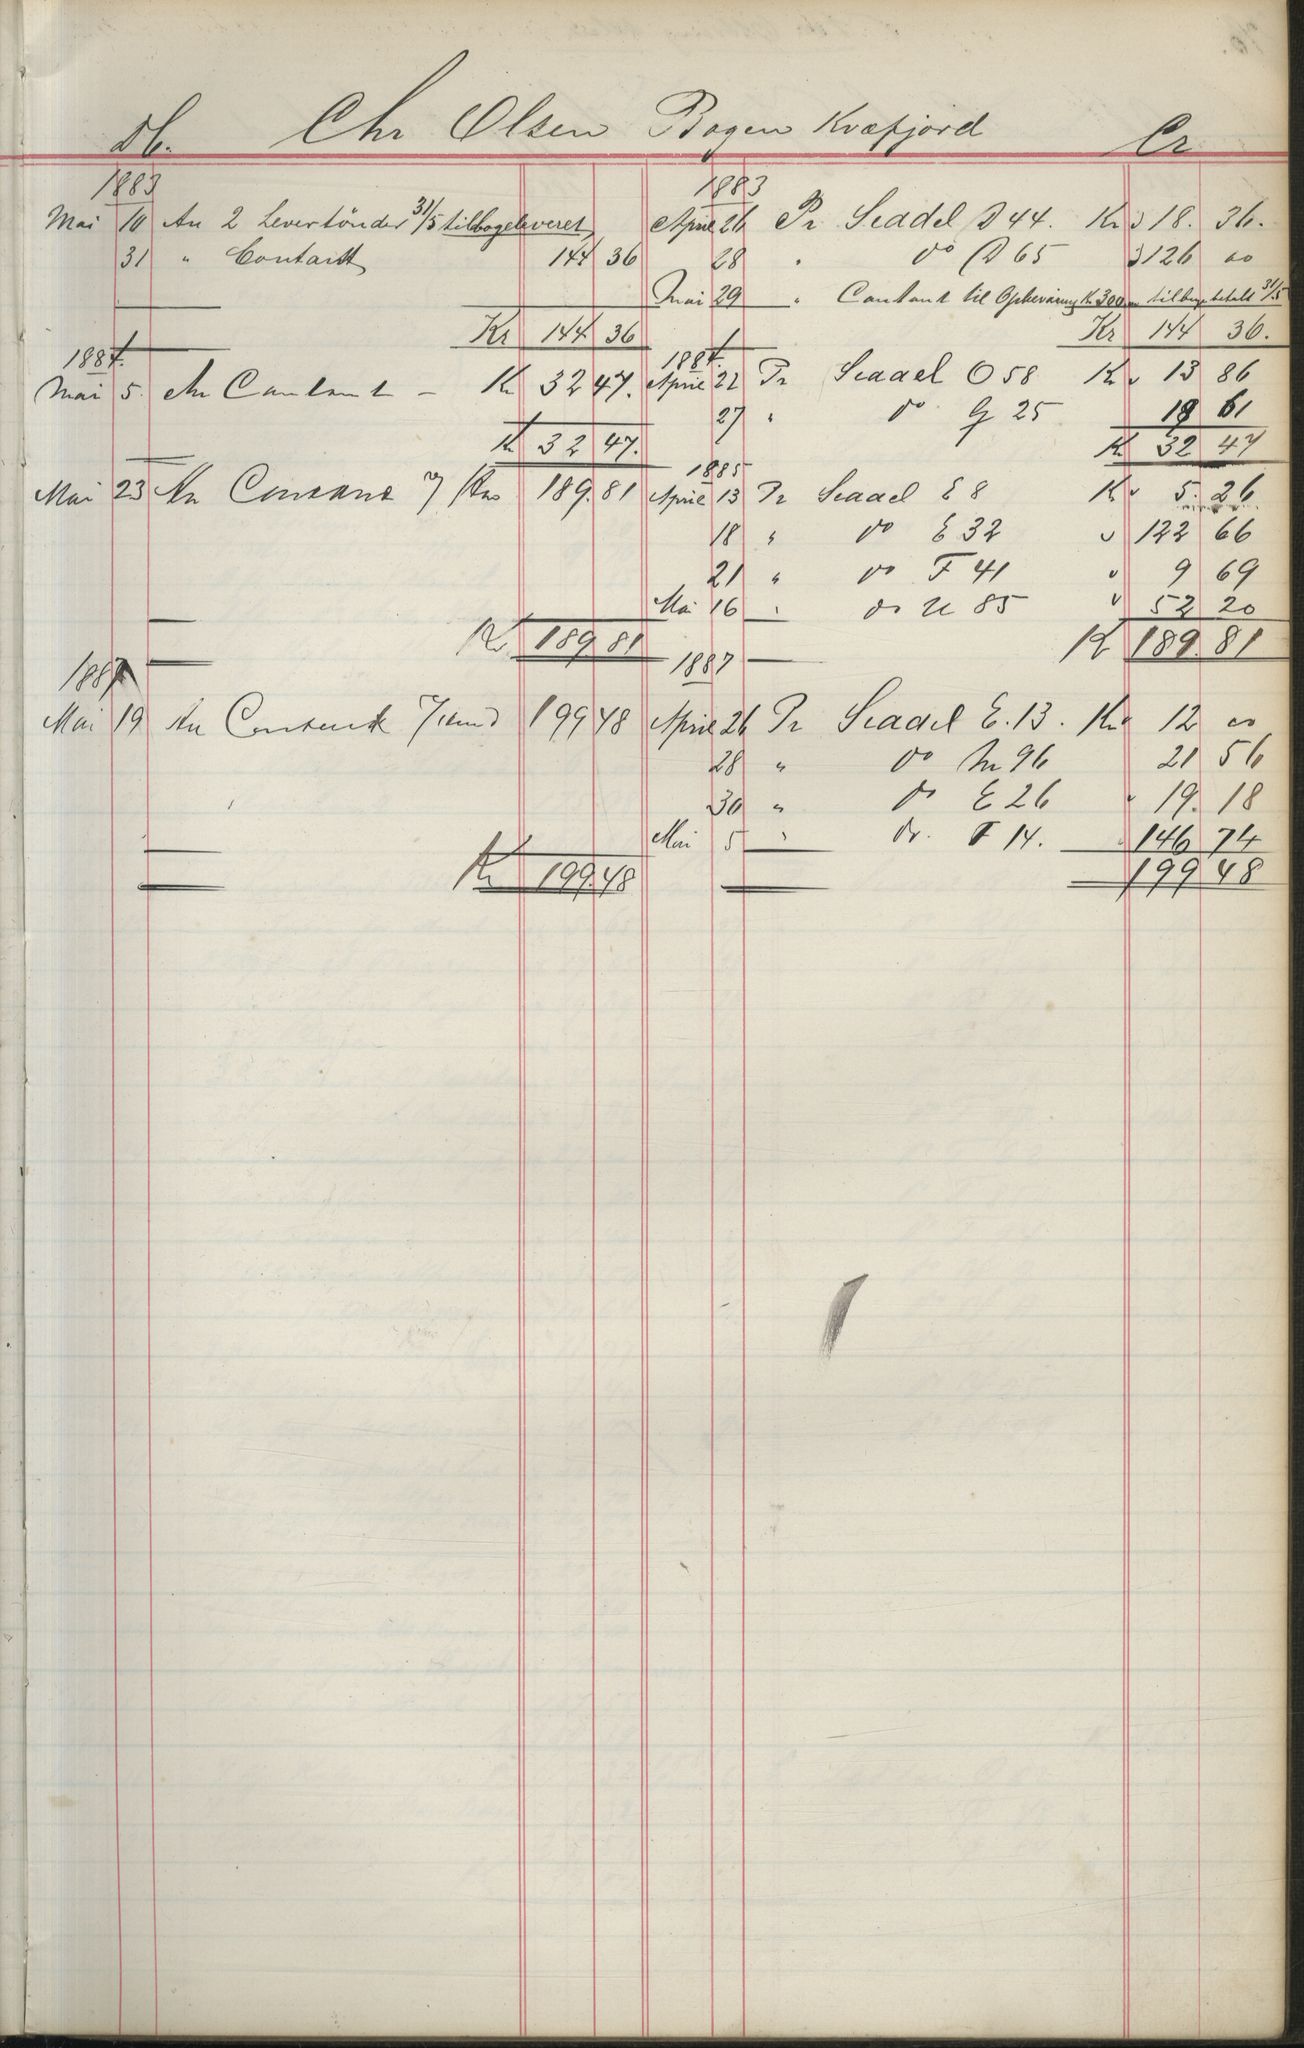 Db. Chr Olsen Bogen Kvæfjord Cr
1883
Mai 10 An 2 Levertönder 31/5 tilbageleveret
31 " Contant 144 36
Kr 144 36
1884.
Mai 5. An Contant - Kr 32 47.
Kr 32 47.
Mai 23 An Contant 189.81
Kr 189.81
1887
Mai 19 An Contant 199 48
Kr 199.48
1883
April 26 Pr Seddel D 44. Kr 18. 36.
28 " do D 65 126 00
Mai 29 " Contant til Opbevaring Kr 300 tilbagebetalt 31/5
Kr 144 36.
1884.
April 22 Pr Seddel O 58 Kr 13 86
27 " do G 25 18 61
Kr 32 47
1885
April 13 Pr Seddel E 8 Kr 5. 26
18 " do E 32 122 66
21 " do F 41 9 69
Mai 16 " do U 85 52 20
Kr 189 81
1887
April 26 Pr Seddel E. 13. Kr 12 00
28 " do M 96 21 56
30 " do E 26 19. 18
Mai 5 " do. F 14. 146 74
199 48